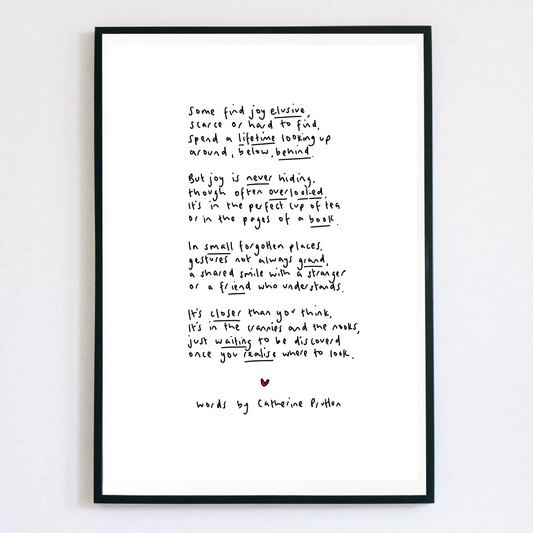 Some find joy elusive,
scarce or hard to find,
spend a lifetime looking up
around, below, behind.
But joy is never hiding,
though often overlooked.
It's in the perfect cup of tea
or in the pages of a book.
In small forgotten places,
gestures not always grand,
a shared smile with a stranger
or a friend who understands.
It's closer than you think,
It's in the crannies and the nooks,
just waiting to be discoverd
once you realise where to look.
words by Catherine Prutton